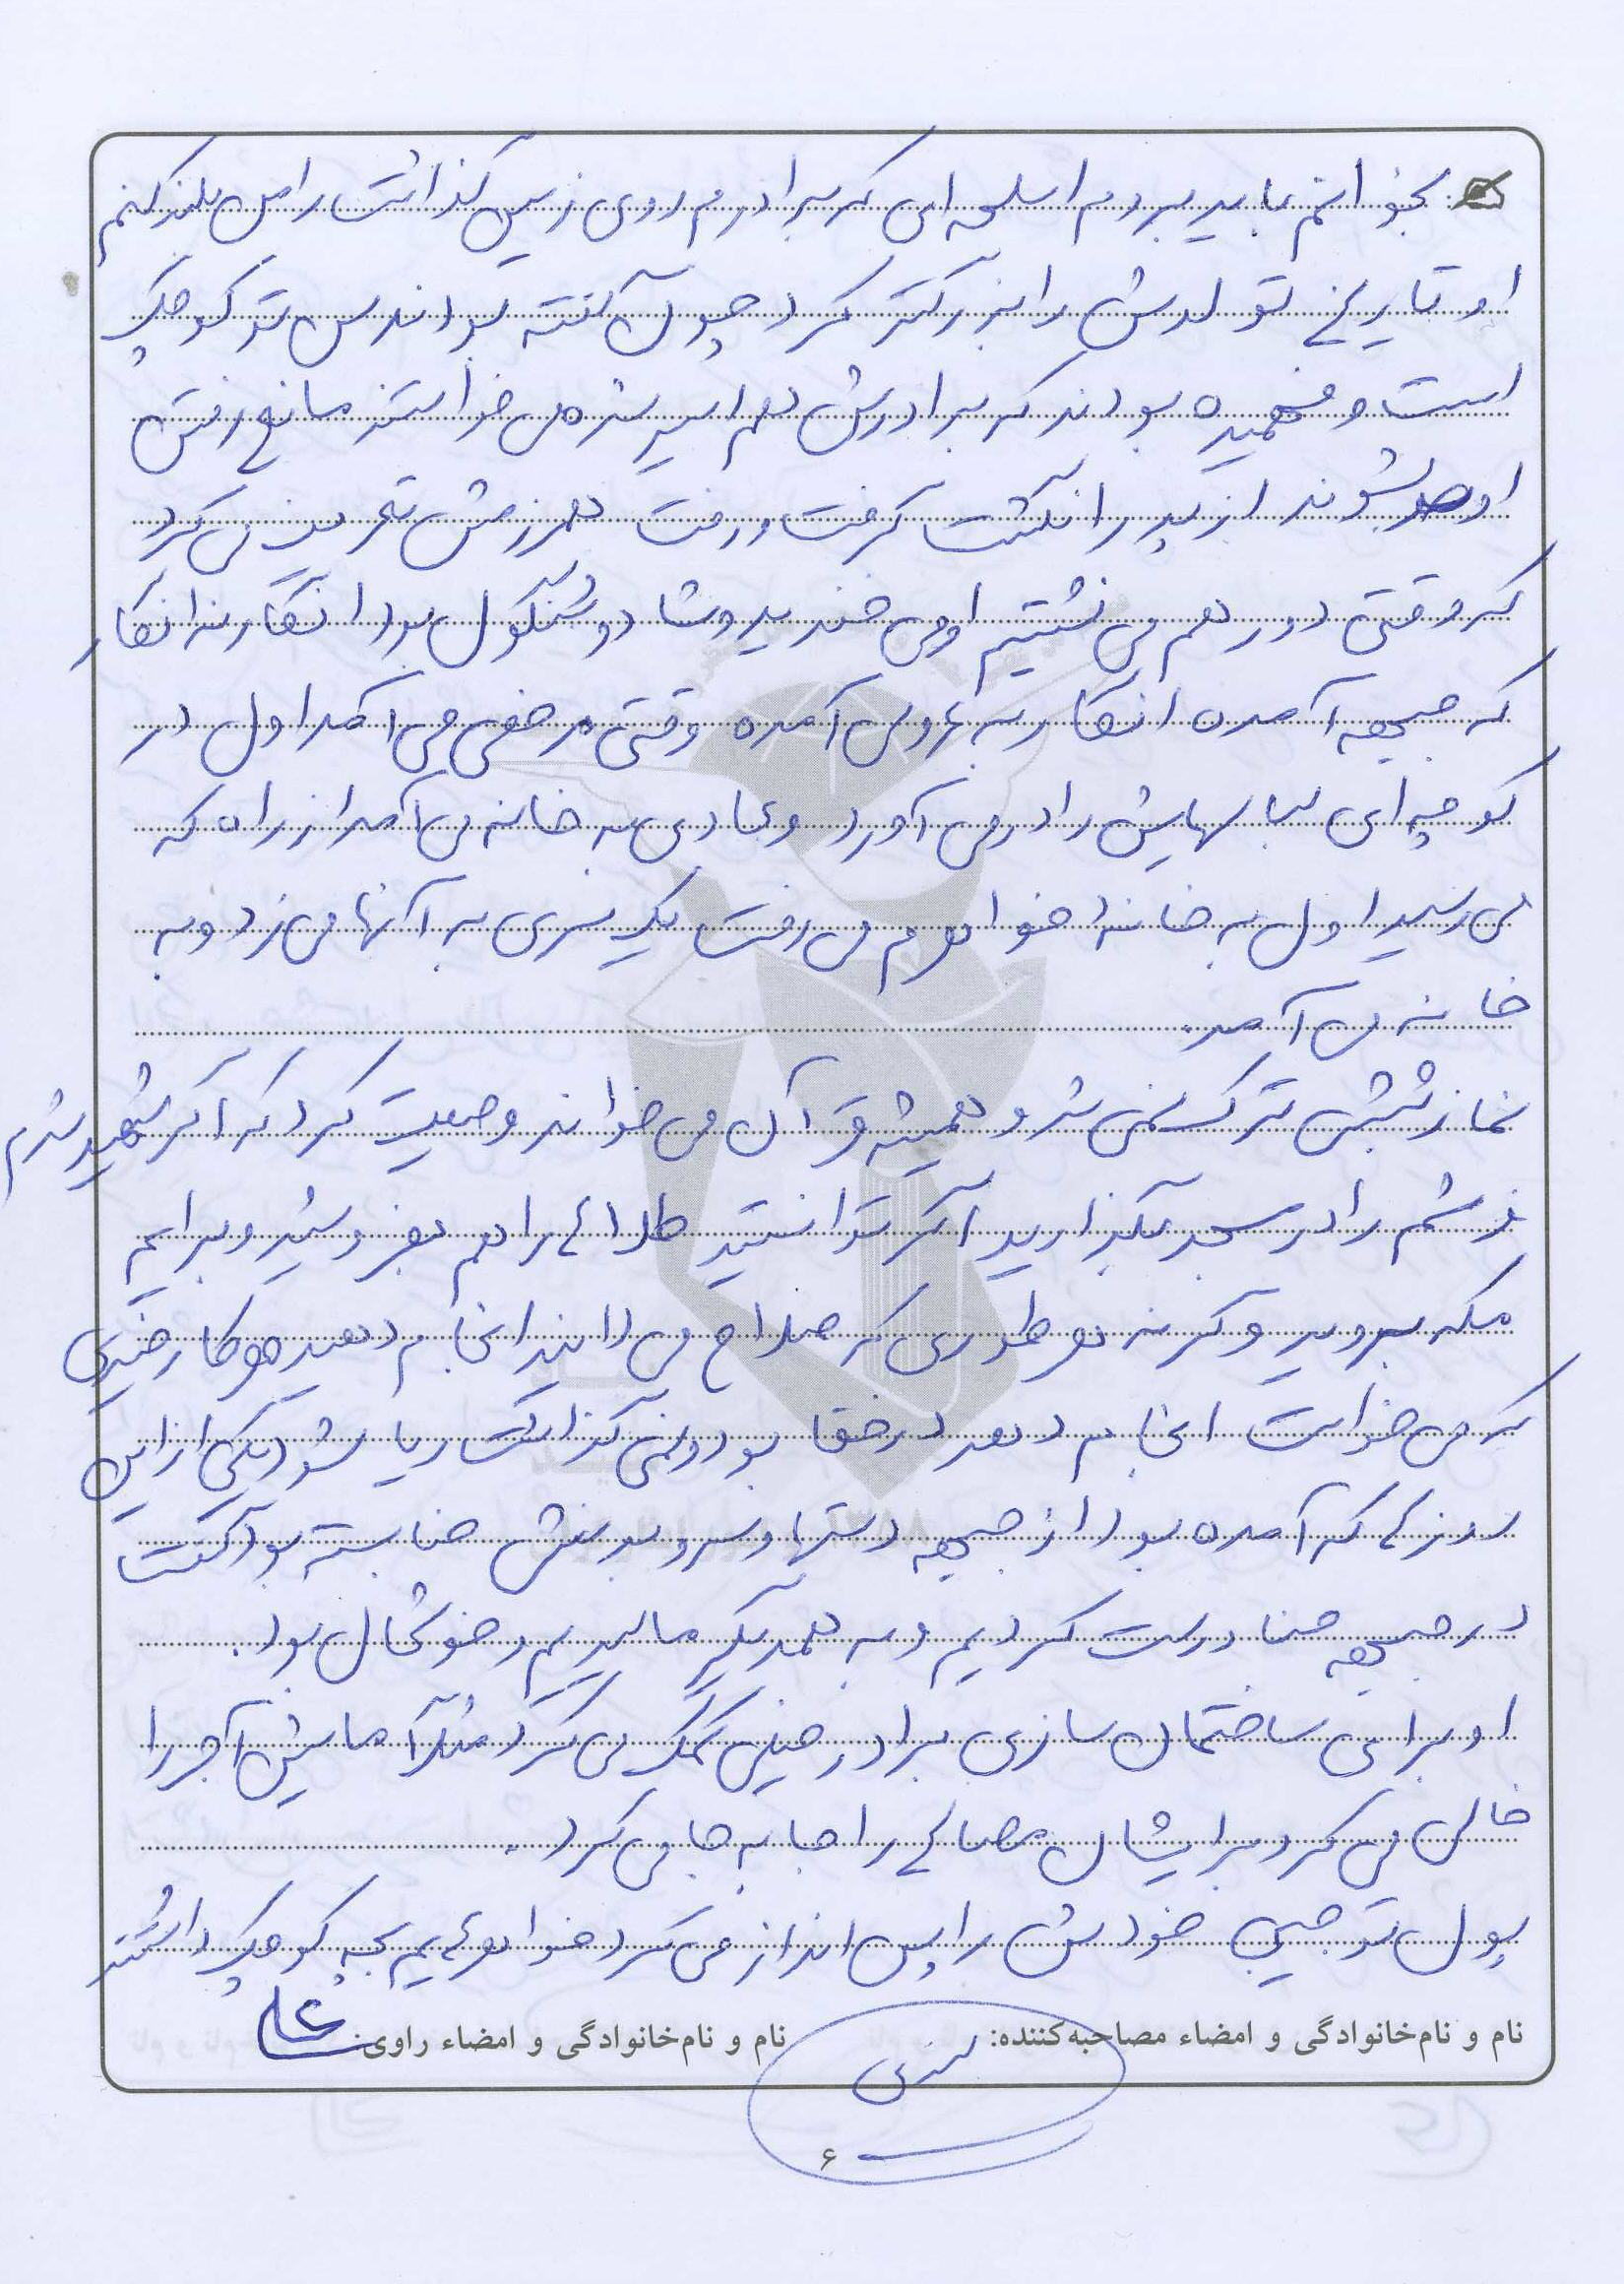 بخوانم باید بروم اسلحه ای که برادرم روی زمین گذاشت را من بلند کنم
او تاریخ تولدش را بزرگتر کرد چون گفته بودند سن تو کوچک
است و فهمیده بودند که برادرش هم اسیر شده می خواستند مانع رفتن
او بشوند از پدر انگشت گرفت و رفت همرزمش تعریف می کرد
که وقتی دور هم می نشستیم او می خندید و شاد و شنگول بود انگار نه انگار
که جبهه آمده انگار به عروسی آمده وقتی مرخصی می آمد اول در
کوچه ای لباسهایش را در می آورد و عادی به خانه می آمد از راه که
می رسید اول به خانه خواهرم می رفت یک سری به آنها می زد و به
خانه می آمد.
نماز شبش ترک نمی شد و همیشه قرآن می خواند وصیت کرد که اگر شهید شدم
فرشم را در مسجد بگذارید اگر توانستید طلاها را هم بفروشید و برایم
مکه بروید وگرنه هر طوری که صلاح می دانید انجام دهید هر کار خیری
که می خواست انجام دهد در خفا بود و نمی گذاشت ریا بشود یکی از این
روزها که آمده بود از جبهه دستها و سر و بدنش حنا بسته بود گفت
در جبهه حنا درست کردیم و به همدیگر مالیدیم و خوشحال بود.
او برای ساختمان سازی برادر خیلی کمک می کرد مثلاً ماشین آجر را
خالی می کرد برایشان مصالح را جا به جا می کرد.
پول تو جیبی خودش را پس انداز می کرد خواهرهایم بچه کوچک داشتند
نام و نام‌خانوادگی و امضاء مصاحبه‌کننده: نام و نام‌خانوادگی و امضاء راوی:
۶